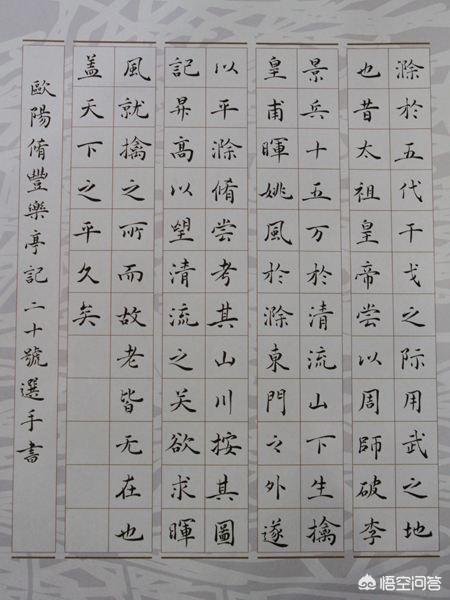 滁於五代干戈之际用武之地
也昔太祖皇帝尝以周師破李
景兵十五万於清流山下生擒
皇甫暉姚風於滁東門之外遂
以平滁脩尝考其山川按其圖
記昇高以望清流之关欲求暉
風就擒之所而故老皆无在也
盖天下之平久矣
歐陽脩豐樂亭記二十號選手書
悟空问答